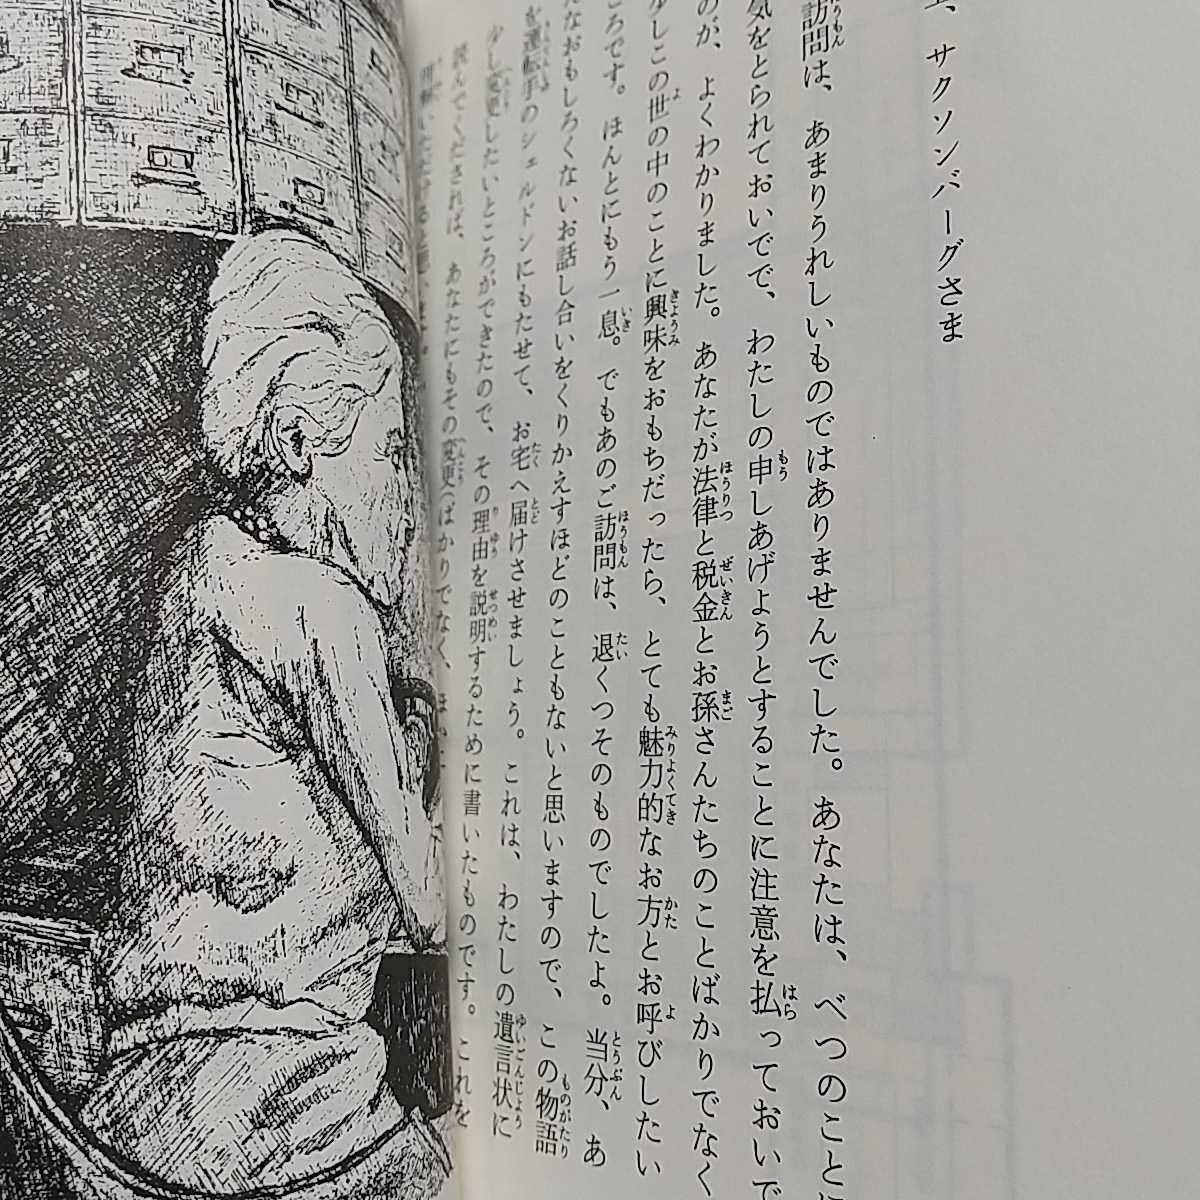 、サクソンバーグさま
訪問は、あまりうれしいものではありませんでした。あなたは、べつのことに
気をとられておいでで、わたしの申しあげようとすることに注意を払っておいで
のが、よくわかりました。あなたが法律と税金とお孫さんたちのことばかりでなく
少しこの世の中のことに興味をおもちだったら、とても魅力的なお方とお呼びしたい
ころです。ほんとにもう一息。でもあのご訪問は、退くつそのものでしたよ。当分、あ
なおもしろくないお話し合いをくりかえすほどのこともないと思いますので、この物語
を運転手のシェルドンにもたせて、お宅へ届けさせましょう。これは、わたしの遺言状に
少し変更したいところができたので、その理由を説明するために書いたものです。これを
読んでくだされば、あなたにもその変更ばかりでなく、ほ